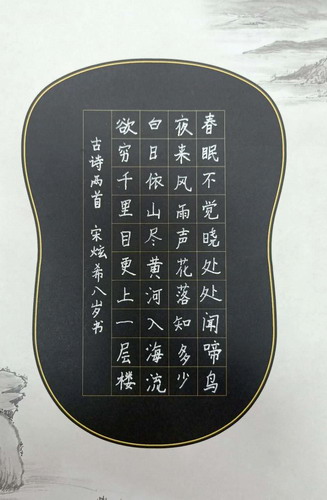 春眠不觉晓处处闻啼鸟
夜来风雨声花落知多少
白日依山尽黄河入海流
欲穷千里目更上一层楼
古诗两首 宋炫希八岁书